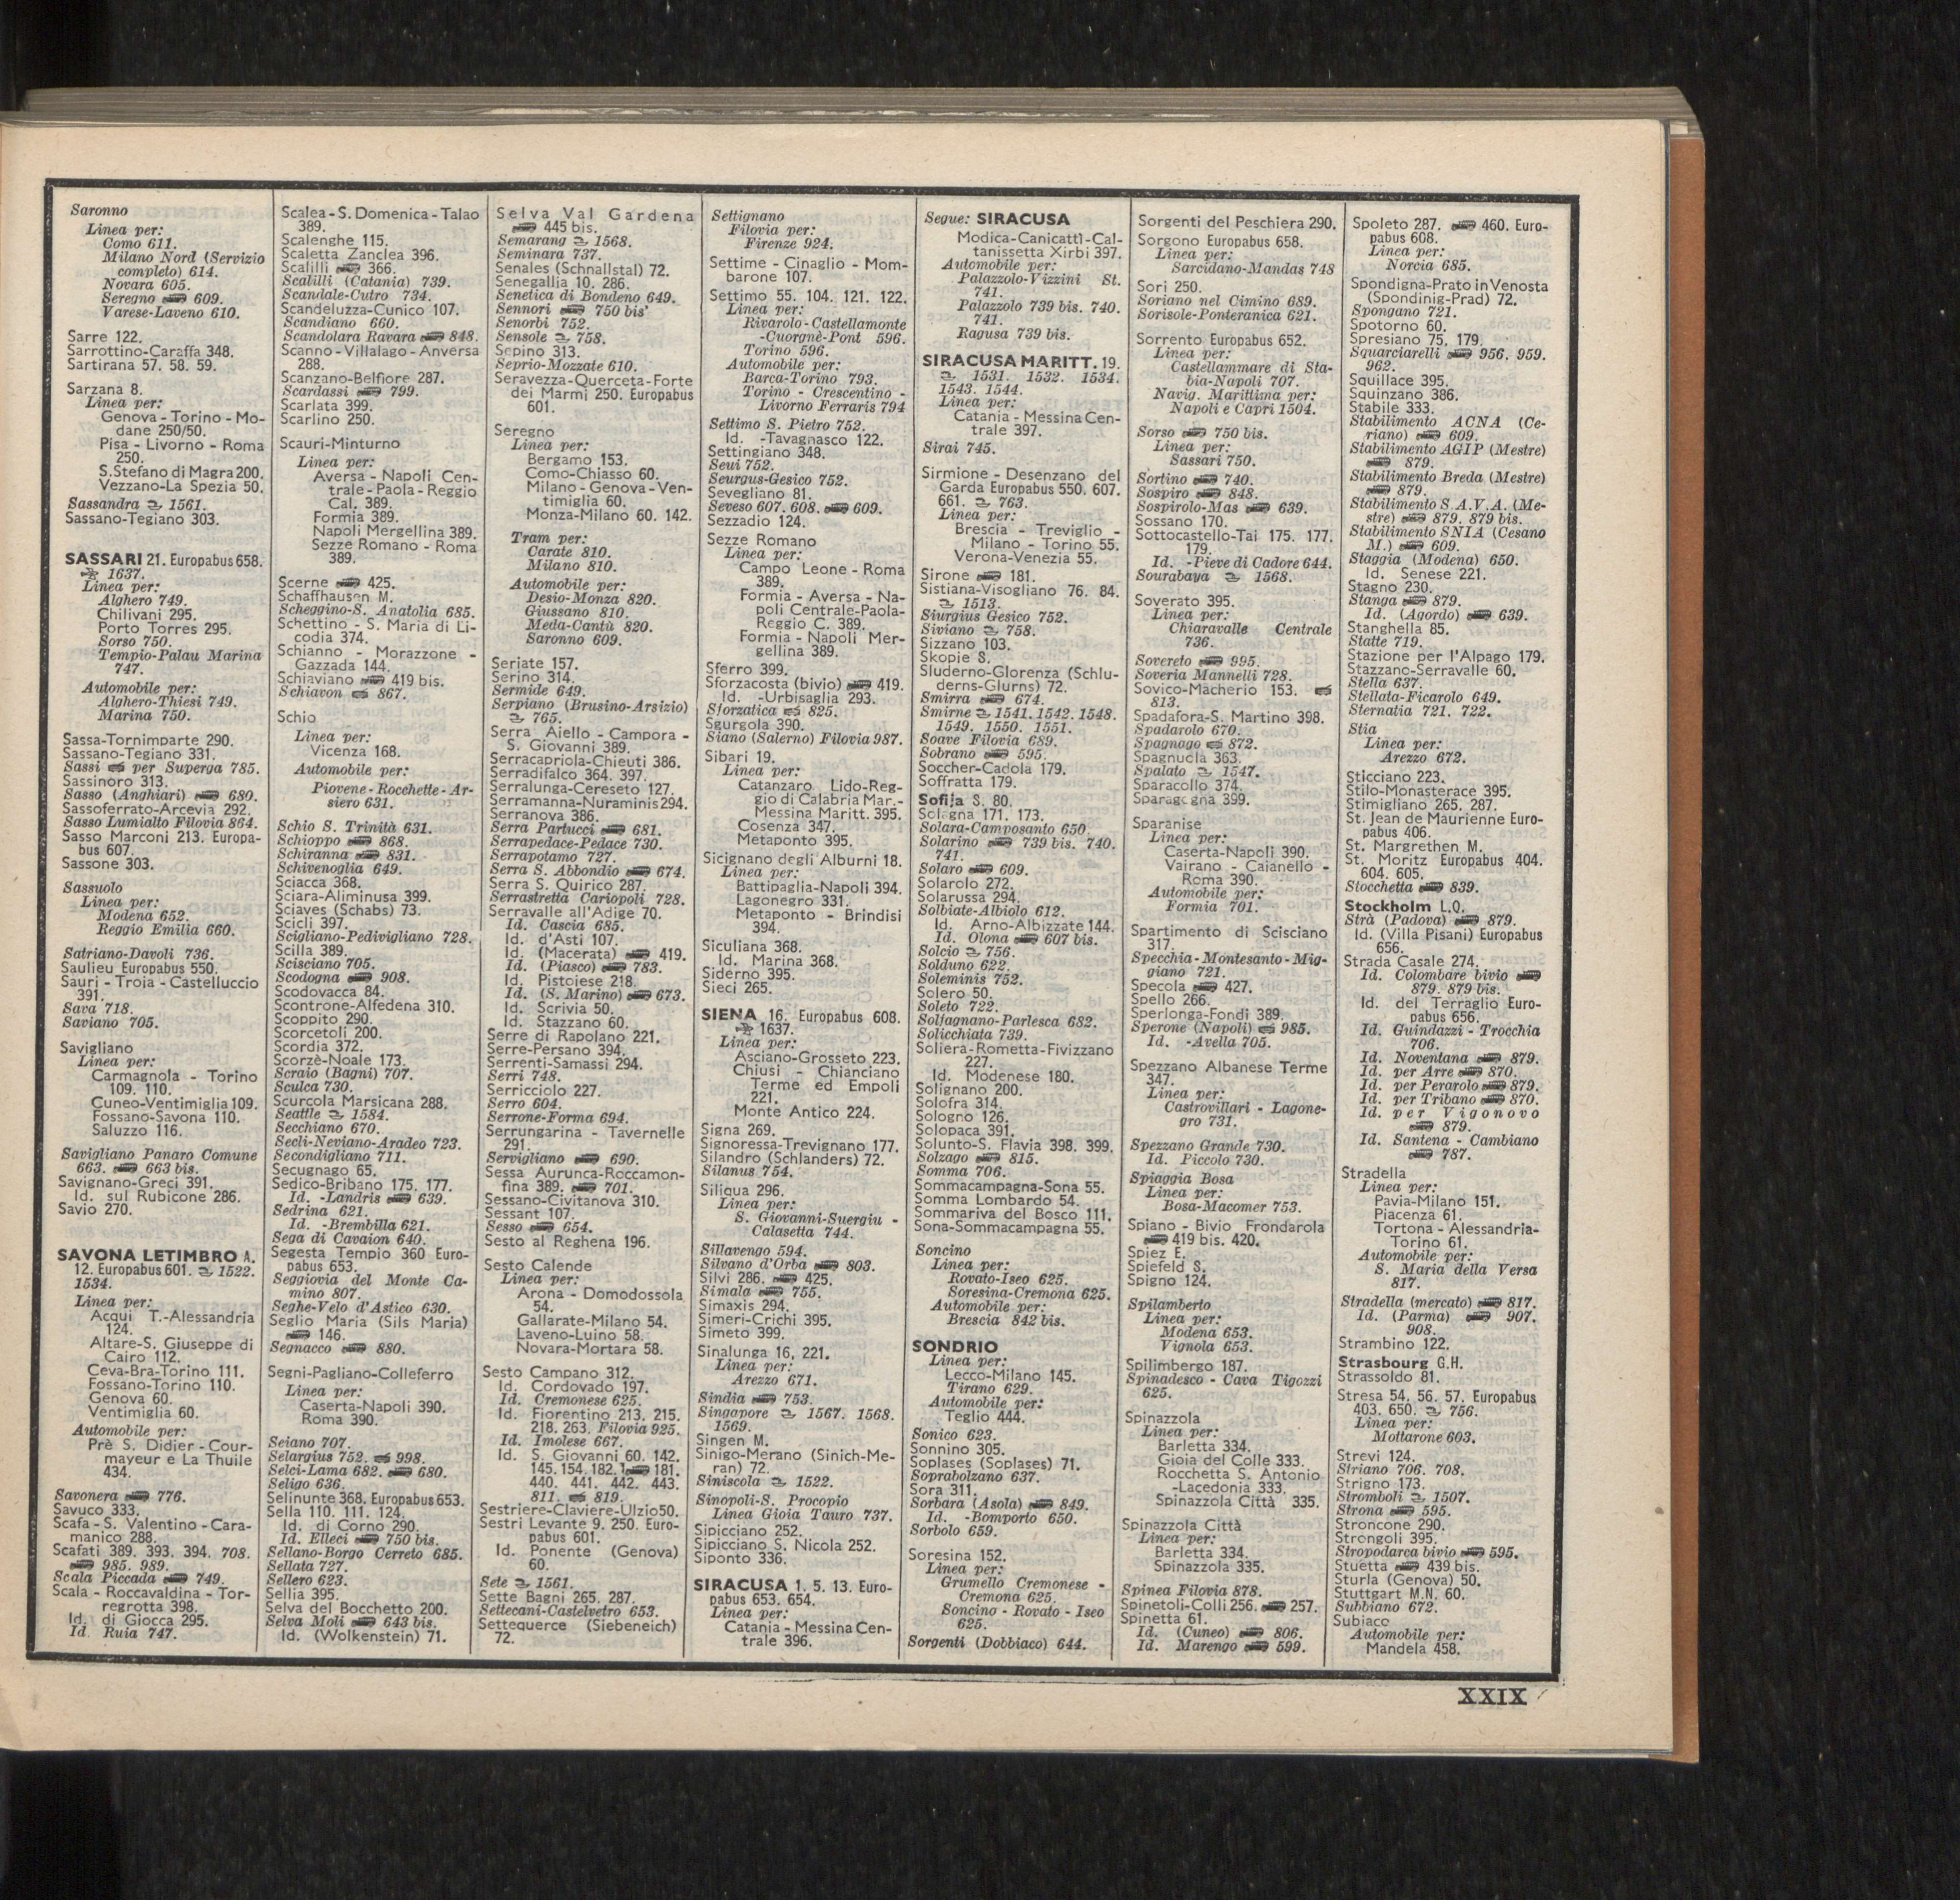 Saronno
Linea per:
Como 611.
Milano Nord (Servizio
completo) 614.
Novara 605.
Seregno 609.
Varese-Laveno 610.
Sarre 122.
Sarrottino-Caraffa 348.
Sartirana 57. 58. 59.
Sarzana 8.
Linea per:
Genova - Torino - Mo-
dane 250/50.
Pisa - Livorno - Roma
250.
S.Stefano di Magra 200.
Vezzano-La Spezia 50.
Sassandra 1561.
Sassano-Tegiano 303.
SASSARI 21. Europabus 658.
1637.
Linea per:
Alghero 749.
Chilivani 295.
Porto Torres 295.
Sorso 750.
Tempio-Palau Marina
747.
Automobile per:
Alghero-Thiesi 749.
Marina 750.
Sassa-Tornimparte 290.
Sassano-Tegiano 331.
Sassi per Superga 785.
Sassinoro 313.
Sasso (Anghiari) 680.
Sassoferrato-Arcevia 292.
Sasso Lumialto Filovia 864.
Sasso Marconi 213. Europa-
bus 607.
Sassone 303.
Sassuolo
Linea per:
Modena 652.
Reggio Emilia 660.
Satriano-Davoli 736.
Saulieu Europabus 550.
Sauri - Troia - Castelluccio
391.
Sava 718.
Saviano 705.
Savigliano
Linea per:
Carmagnola - Torino
109. 110.
Cuneo-Ventimiglia 109.
Fossano-Savona 110.
Saluzzo 116.
Savigliano Panaro Comune
663. 663 bis.
Savignano-Greci 391.
Id. sul Rubicone 286.
Savio 270.
SAVONA LETIMBRO A.
12. Europabus 601. 1522.
1534.
Linea per:
Acqui T.-Alessandria
124.
Altare-S. Giuseppe di
Cairo 112.
Ceva-Bra-Torino 111.
Fossano-Torino 110.
Genova 60.
Ventimiglia 60.
Automobile per:
Prè S. Didier - Cour-
mayeur e La Thuile
434.
Savonera 776.
Savuco 333.
Scafa - S. Valentino - Cara-
manico 288.
Scafati 389. 393. 394. 708.
985. 989.
Scala Piccada 749.
Scala - Roccavaldina - Tor-
regrotta 398.
Id. di Giocca 295.
Id. Ruia 747.
Scalea - S. Domenica - Talao
389.
Scalenghe 115.
Scaletta Zanclea 396.
Scalilli 366.
Scalilli (Catania) 739.
Scandale-Cutro 734.
Scandeluzza-Cunico 107.
Scandiano 660.
Scandolara Ravara 848.
Scanno - Villalago - Anversa
288.
Scanzano-Belfiore 287.
Scardassi 799.
Scarlata 399.
Scarlino 250.
Scauri-Minturno
Linea per:
Aversa - Napoli Cen-
trale - Paola - Reggio
Cal. 389.
Formia 389.
Napoli Mergellina 389.
Sezze Romano - Roma
389.
Scerne 425.
Schaffhausen M.
Scheggino-S. Anatolia 685.
Schettino - S. Maria di Li-
codia 374.
Schianno - Morazzone -
Gazzada 144.
Schiaviano 419 bis.
Schiavon 867.
Schio
Linea per:
Vicenza 168.
Automobile per:
Piovene - Rocchette - Ar-
siero 631.
Schio S. Trinità 631.
Schioppo 868.
Schiranna 831.
Schivenoglia 649.
Sciacca 368.
Sciara-Aliminusa 399.
Sciaves (Schabs) 73.
Scicli 397.
Scigliano-Pedivigliano 728.
Scilla 389.
Scisciano 705.
Scodogna 908.
Scodovacca 84.
Scontrone-Alfedena 310.
Scoppito 290.
Scorcetoli 200.
Scordia 372.
Scorzè-Noale 173.
Scraio (Bagni) 707.
Sculca 730.
Scurcola Marsicana 288.
Seattle 1584.
Secchiano 670.
Secli-Neviano-Aradeo 723.
Secondigliano 711.
Secugnago 65.
Sedico-Bribano 175. 177.
Id. -Landris 639.
Sedrina 621.
Id. -Brembilla 621.
Sega di Cavaion 640.
Segesta Tempio 360 Euro-
pabus 653.
Seggiovia del Monte Ca-
mino 807.
Seghe-Velo d'Astico 630.
Seglio Maria (Sils Maria)
146.
Segnacco 880.
Segni-Pagliano-Colleferro
Linea per:
Caserta-Napoli 390.
Roma 390.
Seiano 707.
Selargius 752. 998.
Selci-Lama 682. 680.
Seligo 636.
Selinunte 368. Europabus 653.
Sella 110. 111. 124.
Id. di Corno 290.
Id. Elleci 750 bis.
Sellano-Borgo Cerreto 685.
Sellata 727.
Sellero 623.
Sellia 395.
Selva del Bocchetto 200.
Selva Moli 643 bis.
Id. (Wolkenstein) 71.
Selva Val Gardena
445 bis.
Semarang 1568.
Seminara 737.
Senales (Schnallstal) 72.
Senegallia 10. 286.
Senetica di Bondeno 649.
Sennori 750 bis'
Senorbi 752.
Sensole 758.
Sepino 313.
Seprio-Mozzate 610.
Seravezza-Querceta-Forte
dei Marmi 250. Europabus
601.
Seregno
Linea per:
Bergamo 153.
Como-Chiasso 60.
Milano - Genova - Ven-
timiglia 60.
Monza-Milano 60. 142.
Tram per:
Carate 810.
Milano 810.
Automobile per:
Desio-Monza 820.
Giussano 810.
Meda-Cantù 820.
Saronno 609.
Seriate 157.
Serino 314.
Sermide 649.
Serpiano (Brusino-Arsizio)
765.
Serra Aiello - Campora -
S. Giovanni 389.
Serracapriola-Chieuti 386.
Serradifalco 364. 397.
Serralunga-Cereseto 127.
Serramanna-Nuraminis 294.
Serranova 386.
Serra Partucci 681.
Serrapedace-Pedace 730.
Serrapotamo 727.
Serra S. Abbondio 674.
Serra S. Quirico 287.
Serrastretta Cariopoli 728.
Serravalle all'Adige 70.
Id. Cascia 685.
Id. d'Asti 107.
Id. (Macerata) 419.
Id. (Piasco) 783.
Id. Pistoiese 218.
Id. (S. Marino) 673.
Id. Scrivia 50.
Id. Stazzano 60.
Serre di Rapolano 221.
Serre-Persano 394.
Serrenti-Samassi 294.
Serri 748.
Serricciolo 227.
Serro 604.
Serrone-Forma 694.
Serrungarina - Tavernelle
291.
Servigliano 690.
Sessa Aurunca-Roccamon-
fina 389. 701.
Sessano-Civitanova 310.
Sessant 107.
Sesso 654.
Sesto al Reghena 196.
Sesto Calende
Linea per:
Arona - Domodossola
54.
Gallarate-Milano 54.
Laveno-Luino 58.
Novara-Mortara 58.
Sesto Campano 312.
Id. Cordovado 197.
Id. Cremonese 625.
Id. Fiorentino 213. 215.
218. 263. Filovia 925.
Id. Imolese 667.
Id. S. Giovanni 60. 142.
145. 154. 182. 181.
440. 441. 442. 443.
811. 819.
Sestriere-Claviere-Ulzio 50.
Sestri Levante 9. 250. Euro-
pabus 601.
Id. Ponente (Genova)
60.
Sete 1561.
Sette Bagni 265. 287.
Settecani-Castelvetro 653.
Settequerce (Siebeneich)
72.
Settignano
Filovia per:
Firenze 924.
Settime - Cinaglio - Mom-
barone 107.
Settimo 55. 104. 121. 122.
Linea per:
Rivarolo - Castellamonte
-Cuorgnè-Pont 596.
Torino 596.
Automobile per:
Barca-Torino 793.
Torino - Crescentino -
Livorno Ferraris 794
Settimo S. Pietro 752.
Id. -Tavagnasco 122.
Settingiano 348.
Seui 752.
Seurgus-Gesico 752.
Sevegliano 81.
Seveso 607. 608. 609.
Sezzadio 124.
Sezze Romano
Linea per:
Campo Leone - Roma
389.
Formia - Aversa - Na-
poli Centrale-Paola-
Reggio C. 389.
Formia - Napoli Mer-
gellina 389.
Sferro 399.
Sforzacosta (bivio) 419.
Id. -Urbisaglia 293.
Sforzatica 825.
Sgurgola 390.
Siano (Salerno) Filovia 987.
Sibari 19.
Linea per:
Catanzaro Lido-Reg-
gio di Calabria Mar.-
Messina Maritt. 395.
Cosenza 347.
Metaponto 395.
Sicignano degli Alburni 18.
Linea per:
Battipaglia-Napoli 394.
Lagonegro 331.
Metaponto - Brindisi
394.
Siculiana 368.
Id. Marina 368.
Siderno 395.
Sieci 265.
SIENA 16. Europabus 608.
1637.
Linea per:
Asciano-Grosseto 223.
Chiusi - Chianciano
Terme ed Empoli
221.
Monte Antico 224.
Signa 269.
Signoressa-Trevignano 177.
Silandro (Schlanders) 72.
Silanus 754.
Siliqua 296.
Linea per:
S. Giovanni-Suergiu -
Calasetta 744.
Sillavengo 594.
Silvano d'Orba 803.
Silvi 286. 425.
Simala 755.
Simaxis 294.
Simeri-Crichi 395.
Simeto 399.
Sinalunga 16, 221.
Linea per:
Arezzo 671.
Sindia 753.
Singapore 1567. 1568.
1569.
Singen M.
Sinigo-Merano (Sinich-Me-
ran) 72.
Siniscola 1522.
Sinopoli-S. Procopio
Linea Gioia Tauro 737.
Sipicciano 252.
Sipicciano S. Nicola 252.
Siponto 336.
SIRACUSA 1. 5. 13. Euro-
pabus 653. 654.
Linea per:
Catania - Messina Cen-
trale 396.
Segue: SIRACUSA
Modica-Canicattì-Cal-
tanissetta Xirbi 397.
Automobile per:
Palazzolo-Vizzini St.
741.
Palazzolo 739 bis. 740.
741.
Ragusa 739 bis.
SIRACUSA MARITT. 19.
1531. 1532. 1534.
1543. 1544.
Linea per:
Catania - Messina Cen-
trale 397.
Sirai 745.
Sirmione - Desenzano del
Garda Europabus 550. 607.
661. 763.
Linea per:
Brescia - Treviglio -
Milano - Torino 55.
Verona-Venezia 55.
Sirone 181.
Sistiana-Visogliano 76. 84.
1513.
Siurgius Gesico 752.
Siviano 758.
Sizzano 103.
Skopie S.
Sluderno-Glorenza (Schlu-
derns-Glurns) 72.
Smirra 674.
Smirne 1541. 1542. 1548.
1549. 1550. 1551.
Soave Filovia 689.
Sobrano 595.
Soccher-Cadola 179.
Soffratta 179.
Sofija S. 80.
Sologna 171. 173.
Solara-Camposanto 650
Solarino 739 bis. 740.
741.
Solaro 609.
Solarolo 272.
Solarussa 294.
Solbiate-Albiolo 612.
Id. Arno-Albizzate 144.
Id. Olona 607 bis.
Solcio 756.
Solduno 622.
Soleminis 752.
Solero 50.
Soleto 722.
Solfagnano-Parlesca 682.
Solicchiata 739.
Soliera-Rometta-Fivizzano
227.
Id. Modenese 180.
Solignano 200.
Solofra 314.
Sologno 126.
Solopaca 391.
Solunto-S. Flavia 398. 399.
Solzago 815.
Somma 706.
Sommacampagna-Sona 55.
Somma Lombardo 54.
Sommariva del Bosco 111.
Sona-Sommacampagna 55.
Soncino
Linea per:
Rovato-Iseo 625.
Soresina-Cremona 625.
Automobile per:
Brescia 842 bis.
SONDRIO
Linea per:
Lecco-Milano 145.
Tirano 629.
Automobile per:
Teglio 444.
Sonico 623.
Sonnino 305.
Soplases (Soplases) 71.
Soprabolzano 637.
Sora 311.
Sorbara (Asola) 849.
Id. -Bomporto 650.
Sorbolo 659.
Soresina 152.
Linea per:
Grumello Cremonese -
Cremona 625.
Soncino - Rovato - Iseo
625.
Sorgenti (Dobbiaco) 644.
Sorgenti del Peschiera 290.
Sorgono Europabus 658.
Linea per:
Sarcidano-Mandas 748
Sori 250.
Soriano nel Cimino 689.
Sorisole-Ponteranica 621.
Sorrento Europabus 652.
Linea per:
Castellammare di Sta-
bia-Napoli 707.
Navig. Marittima per:
Napoli e Capri 1504.
Sorso 750 bis.
Linea per:
Sassari 750.
Sortino 740.
Sospiro 848.
Sospirolo-Mas 639.
Sossano 170.
Sottocastello-Tai 175. 177.
179.
Id. -Pieve di Cadore 644.
Sourabaya 1568.
Soverato 395.
Linea per:
Chiaravalle Centrale
736.
Sovereto 995.
Soveria Mannelli 728.
Sovico-Macherio 153.
813.
Spadafora-S. Martino 398.
Spadarolo 670.
Spagnago 872.
Spagnuola 363.
Spalato 1547.
Sparacollo 374.
Sparagogna 399.
Sparanise
Linea per:
Caserta-Napoli 390.
Vairano - Caianello -
Roma 390.
Automobile per:
Formia 701.
Spartimento di Scisciano
317.
Specchia - Montesanto - Mig-
giano 721.
Specola 427.
Spello 266.
Sperlonga-Fondi 389.
Sperone (Napoli) 985.
Id. -Avella 705.
Spezzano Albanese Terme
347.
Linea per:
Castrovillari - Lagone-
gro 731.
Spezzano Grande 730.
Id. Piccolo 730.
Spiaggia Bosa
Linea per:
Bosa-Macomer 753.
Spiano - Bivio Frondarola
419 bis. 420.
Spiez E.
Spiefeld S.
Spigno 124.
Spilamberto
Linea per:
Modena 653.
Vignola 653.
Spilimbergo 187.
Spinadesco - Cava Tigozzi
625.
Spinazzola
Linea per:
Barletta 334.
Gioia del Colle 333.
Rocchetta S. Antonio
-Lacedonia 333.
Spinazzola Città 335.
Spinazzola Città
Linea per:
Barletta 334.
Spinazzola 335.
Spinea Filovia 878.
Spinetoli-Colli 256. 257.
Spinetta 61.
Id. (Cuneo) 806.
Id. Marengo 599.
Spoleto 287. 460. Euro-
pabus 608.
Linea per:
Norcia 685.
Spondigna-Prato in Venosta
(Spondinig-Prad) 72.
Spongano 721.
Spotorno 60.
Spresiano 75. 179.
Squarciarelli 956. 959.
962.
Squillace 395.
Squinzano 386.
Stabile 333.
Stabilimento ACNA (Ce-
riano) 609.
Stabilimento AGIP (Mestre)
879.
Stabilimento Breda (Mestre)
879.
Stabilimento S.A.V.A. (Me-
stre) 879. 879 bis.
Stabilimento SNIA (Cesano
M.) 609.
Staggia (Modena) 650.
Id. Senese 221.
Stagno 230.
Stanga 879.
Id. (Agordo) 639.
Stanghella 85.
Statte 719.
Stazione per l'Alpago 179.
Stazzano-Serravalle 60.
Stella 637.
Stellata-Ficarolo 649.
Sternatia 721. 722.
Stia
Linea per:
Arezzo 672.
Sticciano 223.
Stilo-Monasterace 395.
Stimigliano 265. 287.
St. Jean de Maurienne Euro-
pabus 406.
St. Margrethen M.
St. Moritz Europabus 404.
604. 605.
Stocchetta 839.
Stockholm L.Q.
Strà (Padova) 879.
Id. (Villa Pisani) Europabus
656.
Strada Casale 274.
Id. Colombare bivio
879. 879 bis.
Id. del Terraglio Euro-
pabus 656.
Id. Guindazzi - Trocchia
706.
Id. Noventana 879.
Id. per Arre 870.
Id. per Perarolo 879.
Id. per Tribano 870.
Id. per Vigonovo
879.
Id. Santena - Cambiano
787.
Stradella
Linea per:
Pavia-Milano 151.
Piacenza 61.
Tortona - Alessandria-
Torino 61.
Automobile per:
S. Maria della Versa
817.
Stradella (mercato) 817.
Id. (Parma) 907.
908.
Strambino 122.
Strasbourg G.H.
Strassoldo 81.
Stresa 54. 56. 57. Europabus
403. 650. 756.
Linea per:
Mottarone 603.
Strevi 124.
Striano 706. 708.
Strigno 173.
Stromboli 1507.
Strona 595.
Stroncone 290.
Strongoli 395.
Stropodarca bivio 595.
Stuetta 439 bis.
Sturla (Genova) 50.
Stuttgart M.N. 60.
Subbiano 672.
Subiaco
Automobile per:
Mandela 458.
XXIX